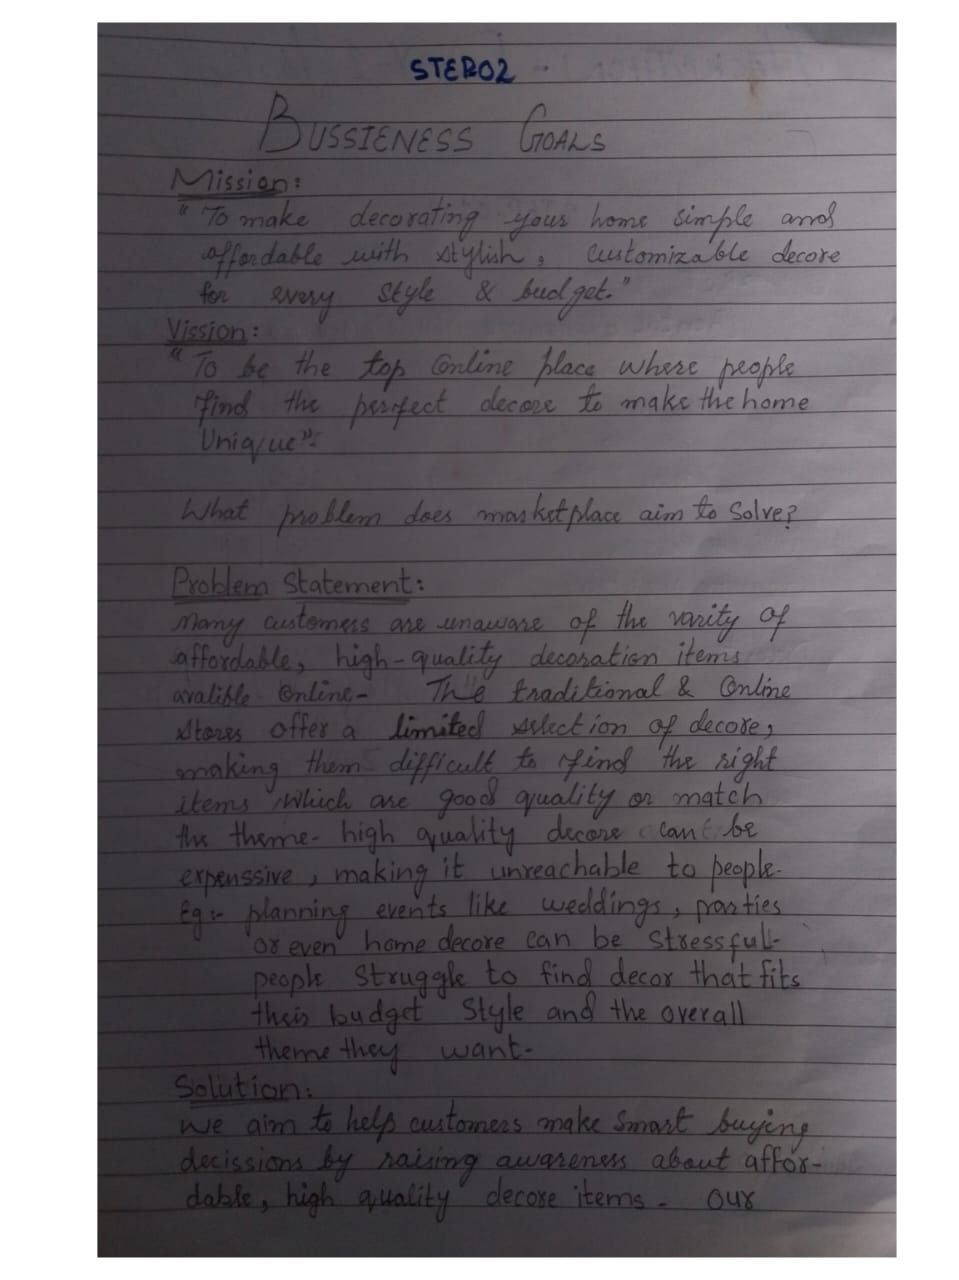 STEP02
BUSSIENESS GOALS
Mission:
"To make decorating your home simple and
affordable with stylish, customizable decore
for every style & budget."
Vission:
"To be the top Online place where people
find the perfect decore to make the home
Unique".
What problem does marketplace aim to Solve?
Problem Statement:
Many customers are unaware of the varity of
affordable, high-quality decoration items
avalible Online- The traditional & Online
stores offer a limited selection of decore,
making them difficult to find the right
items which are good quality or match
the theme- high quality decore can be
expenssive, making it unreachable to people-
Eg:- planning events like weddings, parties
or even home decore can be stressfull-
people struggle to find decor that fits
their budget Style and the overall
theme they want-
Solution:
We aim to help customers make Smart buying
decissions by raising awareness about affor-
dable, high quality decore items- our